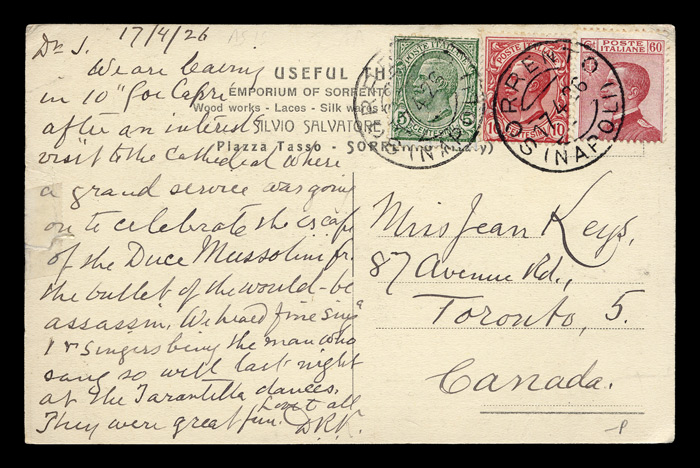 17/4/26
Dr J.
We are leaving
in 10" for Capri
after an interest^g
visit to the Cathedral where
a grand service was going
on to celebrate the escape
of the Duce Mussolini fr.
the bullet of the would-be
assassin. We heard fine sing^g
1 r singers being the man who
sang so well last night
at the Tarantella dances.
They were great fun. Love to all
D.R.K.
USEFUL TH
EMPORIUM OF SORRENT
Wood works - Laces - Silk wares
SILVIO SALVATORE
Piazza Tasso - SORRENTO (Italy)
POSTE ITALIANE
5 CENTESIMI 5
POSTE ITALIANE
10 CENTESIMI 10
POSTE ITALIANE
Ct. 60
SORRENTO (NAPOLI)
17.4.26
SORRENTO (NAPOLI)
17.4.26
Miss Jean Keys,
87 Avenue Rd.,
Toronto, 5.
Canada.